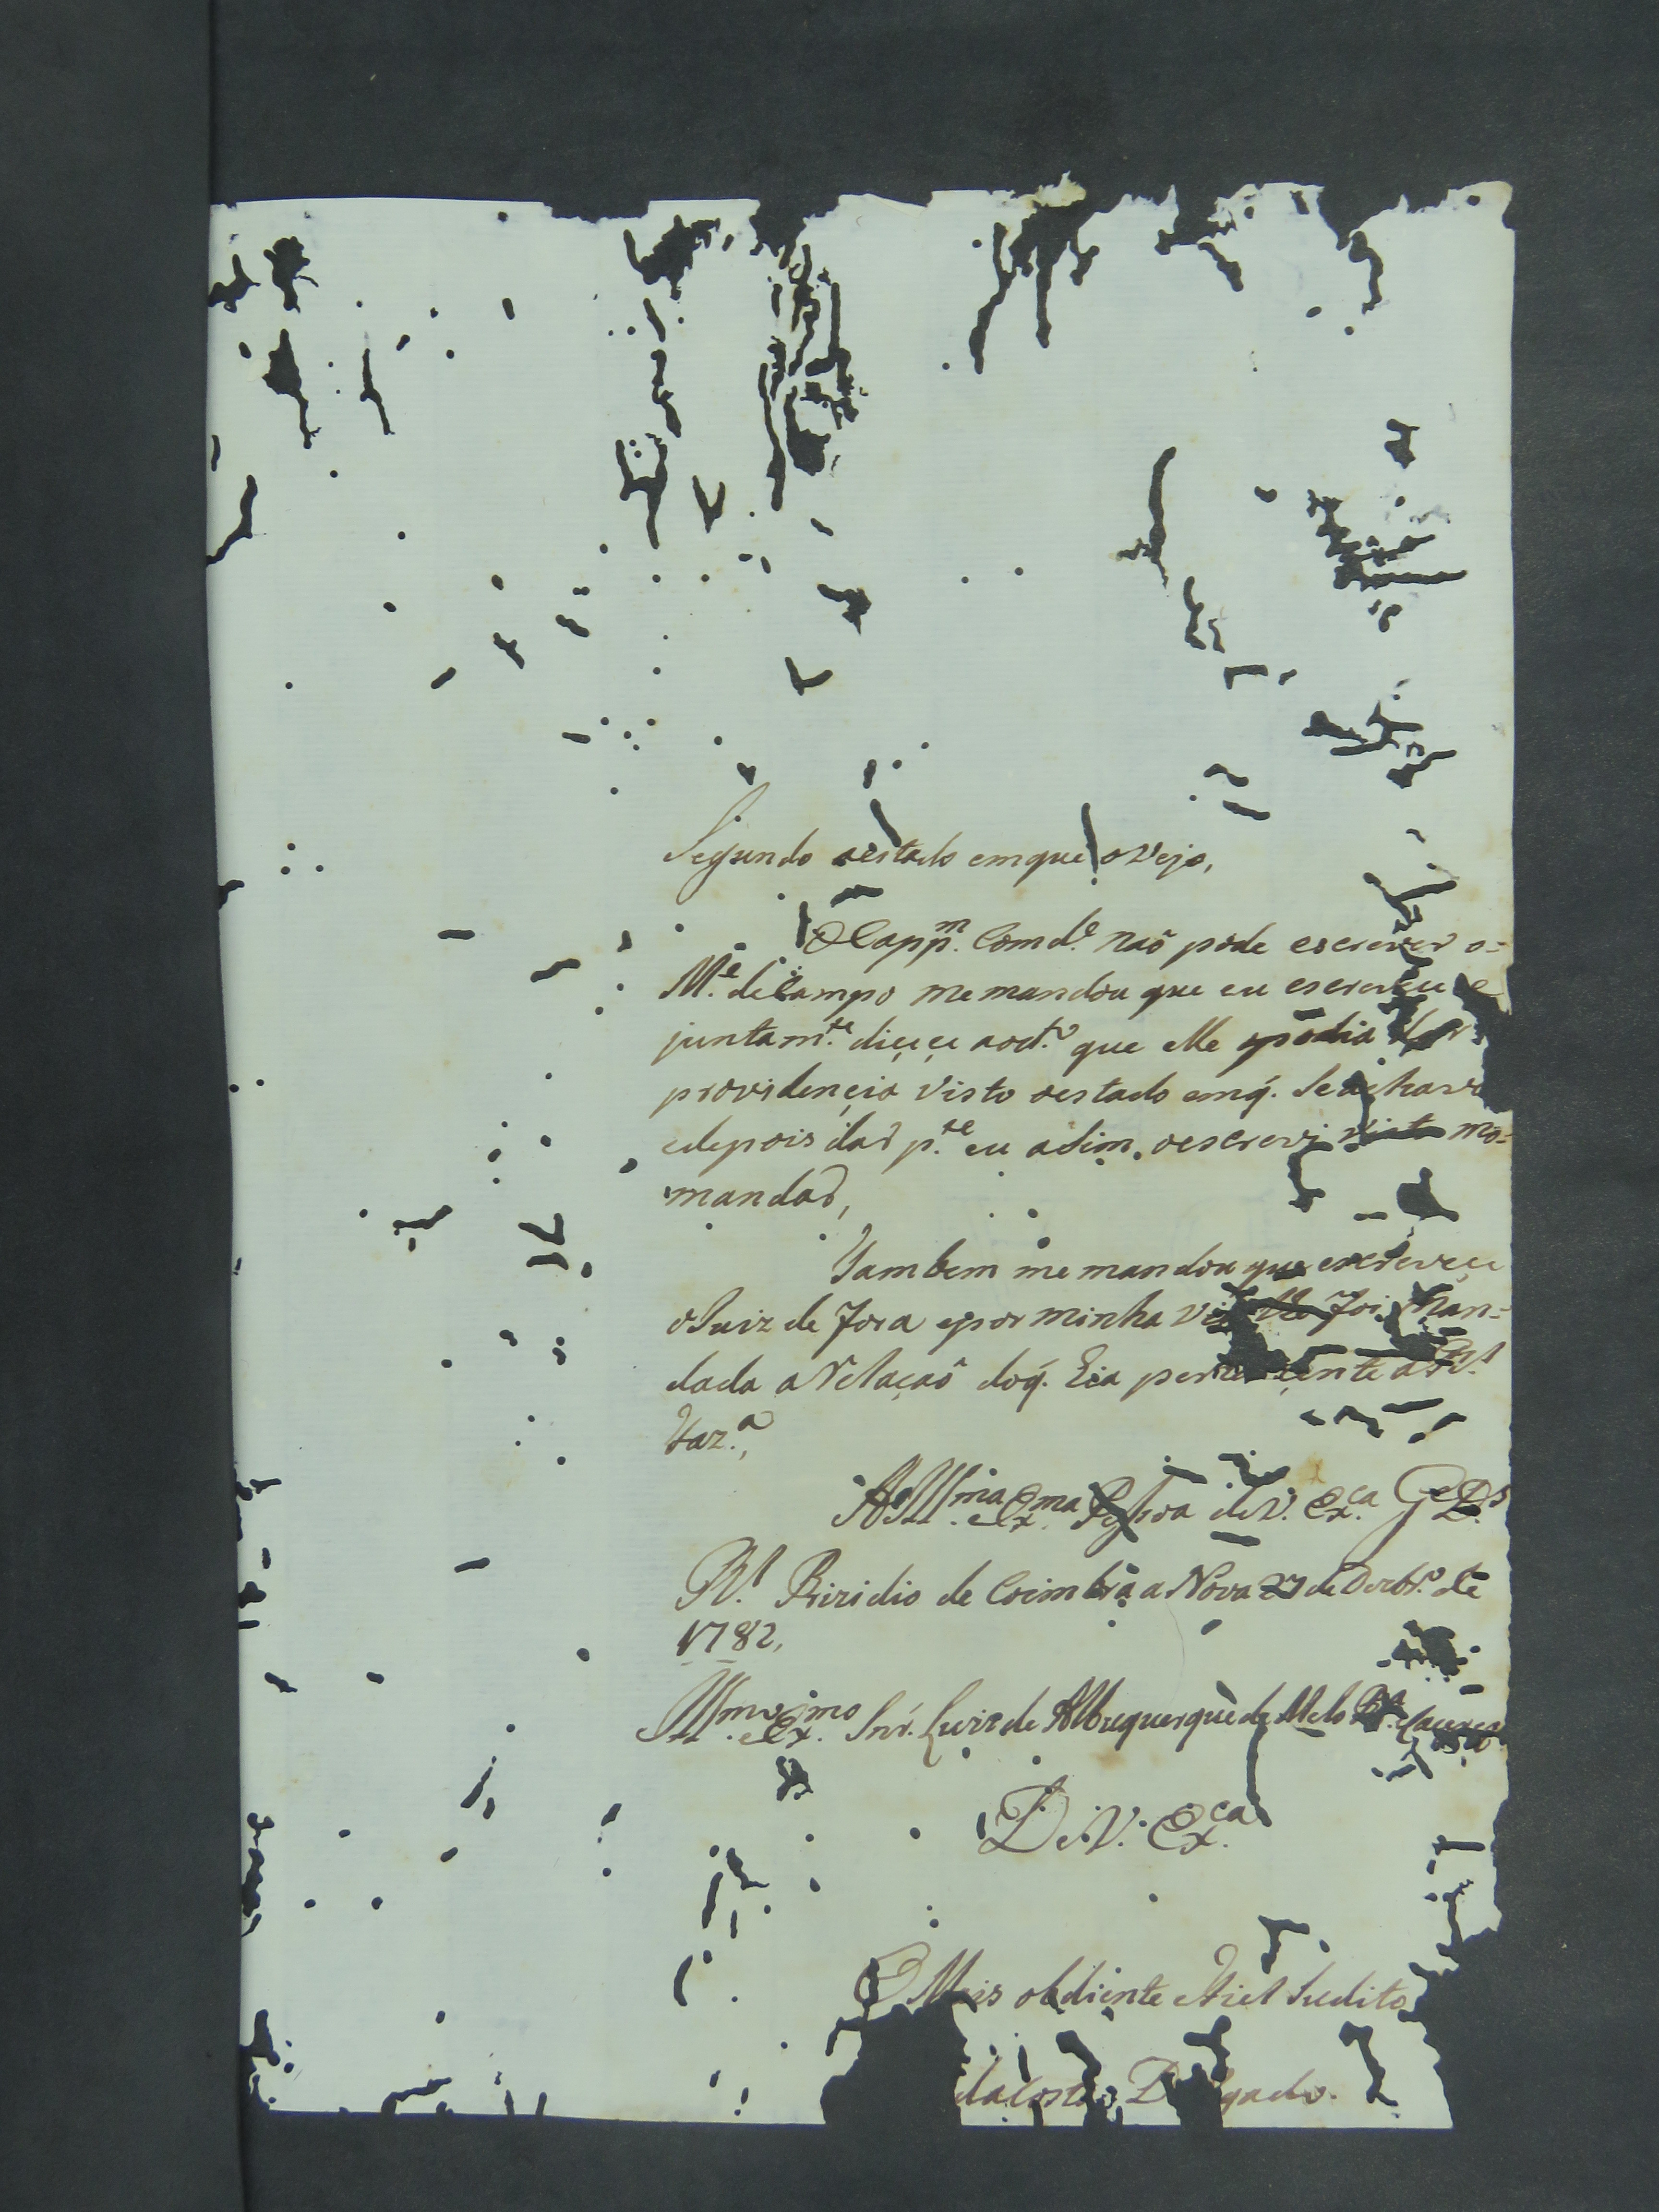 Segundo oestado emque o Vejo,
O Capp.m Com.de naõ pode escrever o=
M.e de Campo me mandou que eu escreveu e
juntam.te diçeçe aod.o que elle podia
providençia Visto oestado emq. Se achava
edepois dar p.te eu asim, oescrevi mo=
mandar,
Tambem me mandou que escreveçe
oJuiz de Fora epor minha foi man=
dada aRelaçaõ doq. Era pertençente a R.l
Faz.a,
A Ill.ma eEx.ma Peçoa deV. Ex.ca G.e D.s
R.l Prizidio de Coimbra a Nova 27 de Dezbr.o de
1782,
Ill.mo eEx.mo Snr. Luiz de Albuquerque de Melo P.ra eCaceres
DeV. Ex.ca
O Mais obdiente eFiel Sudito
daCosta D gado.